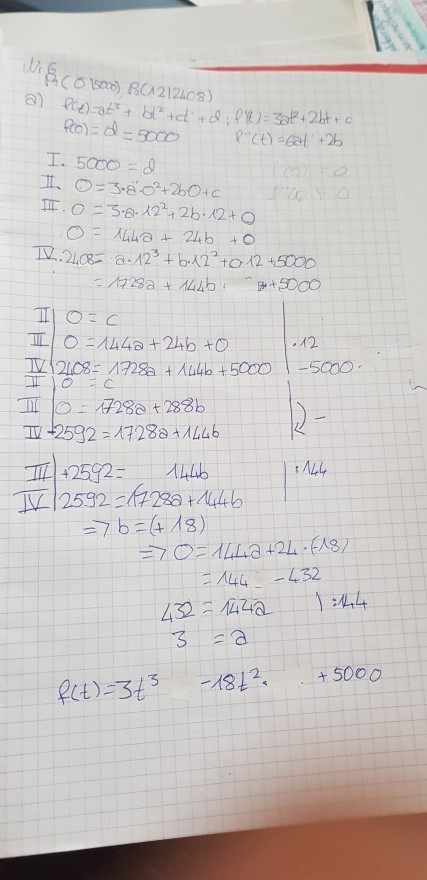 Nr. 6
P₁(0|5000), P₂(12|2408)
a) f(t)=at³ + bt² + ct + d; f'(t)=3at²+2bt+c
f(0)=d=5000 f''(t)=6at+2b
I. 5000=d
II. 0=3·a·0²+2b0+c
III. 0=3·a·12²+2b·12+0
0=144a+24b+0
IV. 2408=a·12³+b·12²+0·12+5000
=1728a+144b+5000
II| 0=c
III| 0=144a+24b+0 |·12
IV| 2408=1728a+144b+5000 |-5000
II| 0=c
III| 0=1728a+288b
IV -2592=1728a+144b
III| +2592= 144b |:144
IV| 2592=1728a+144b
=> b=(+18)
=> 0=144a+24·(-18)
=144 -432
432=144a |:144
3=a
f(t)=3t³ -18t² +5000